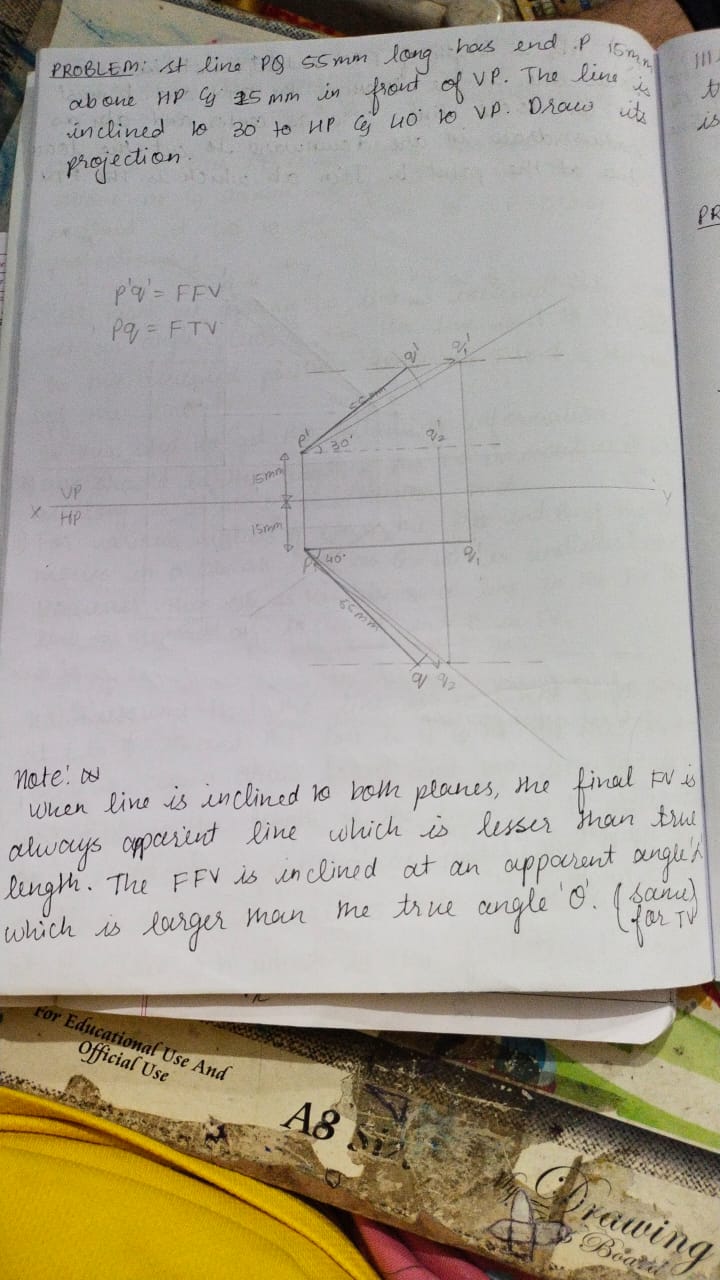 PROBLEM: St line PQ 55mm long has end P 15mm
above HP & 15mm in front of VP. The line is
inclined to 30° to HP & 40° to VP. Draw its
projection.
p'q' = FFV
pq = FTV
q' q1'
55mm
p' 30° q2'
15mm
VP
X Y
HP
15mm
P 40° q1
55mm
q q2
Note:
when line is inclined to both planes, the final FV is
always apparent line which is lesser than true
length. The FFV is inclined at an apparent angle
which is larger than the true angle 'θ'. (same
for TV)
For Educational Use And
Official Use
A8 Size
Drawing
Board
PR
is